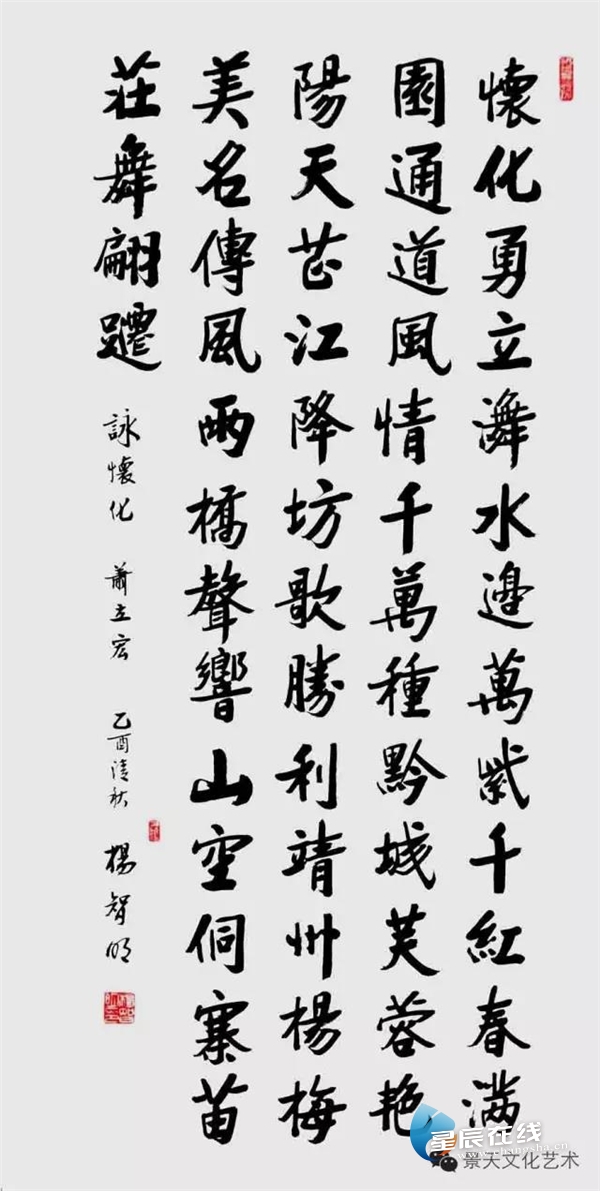 懷化勇立㵲水邊萬紫千紅春满
園通道風情千萬種黔城芙蓉艳
陽天芷江降坊歌勝利靖州楊梅
美名傳風雨橋聲響山空侗寨苗
莊舞翩躚
詠懷化 蕭立宏 乙酉清秋 楊智明
星辰在线
景天文化艺术